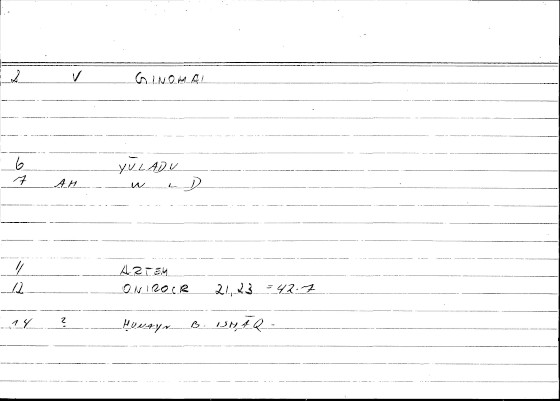 2 V GINOMAI
6 YŪLADU
7 AM W L D
11 ARTEM
12 ONIROCR 21,23 = 42.7
14 ? ḤUNAYN B. ISḤĀQ.